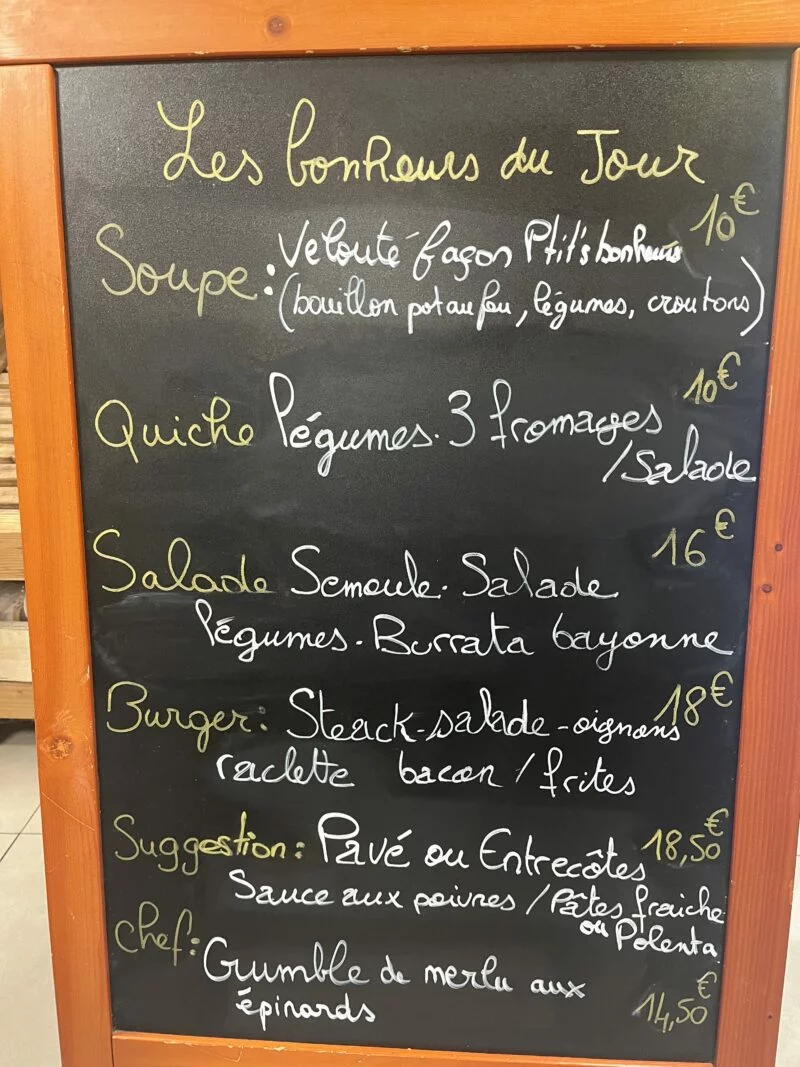 Les bonheurs du Jour
Soupe: Velouté façon Ptit's bonheurs 10€
(bouillon pot au feu, légumes, croutons)
Quiche légumes. 3 fromages 10€
/Salade
Salade Semoule. Salade 16€
légumes. Burrata bayonne
Burger: Steack-salade-oignons 18€
raclette bacon / frites
Suggestion: Pavé ou Entrecôtes 18,50€
Sauce aux poivres / Pâtes fraiche
ou Polenta
Chef: Crumble de merlu aux
épinards 14,50€